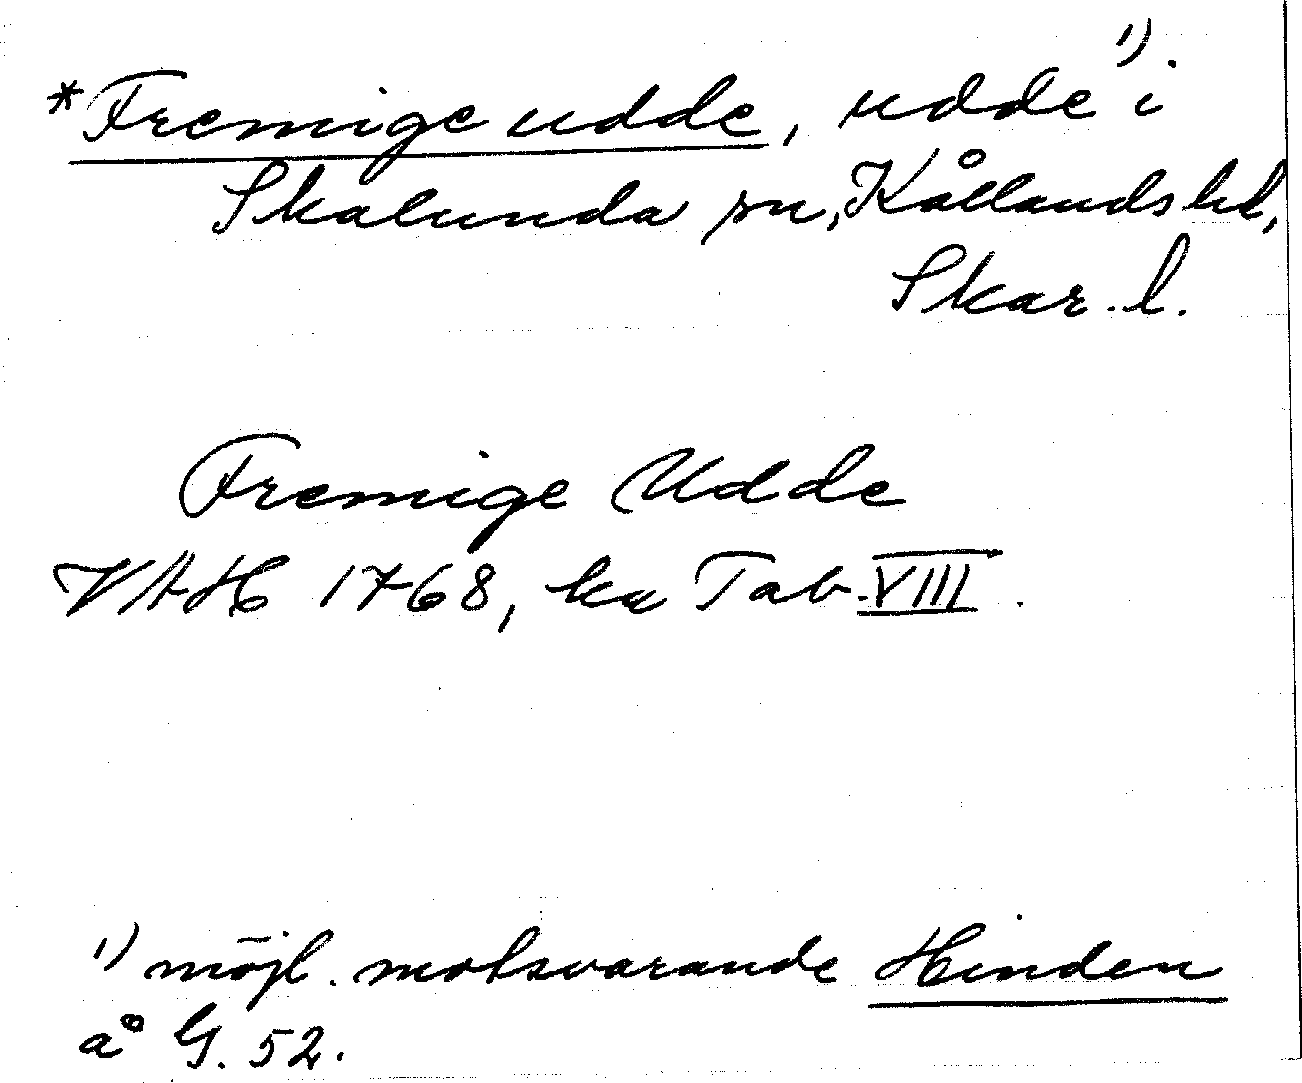 *Fremige udde, udde ¹⁾ i
Skalunda sn, Kållands hd,
Skar. l.
Fremige Udde
VAH 1768, ka Tab. VIII.
¹⁾ möjl. motsvarande Hinden
å G. 52.